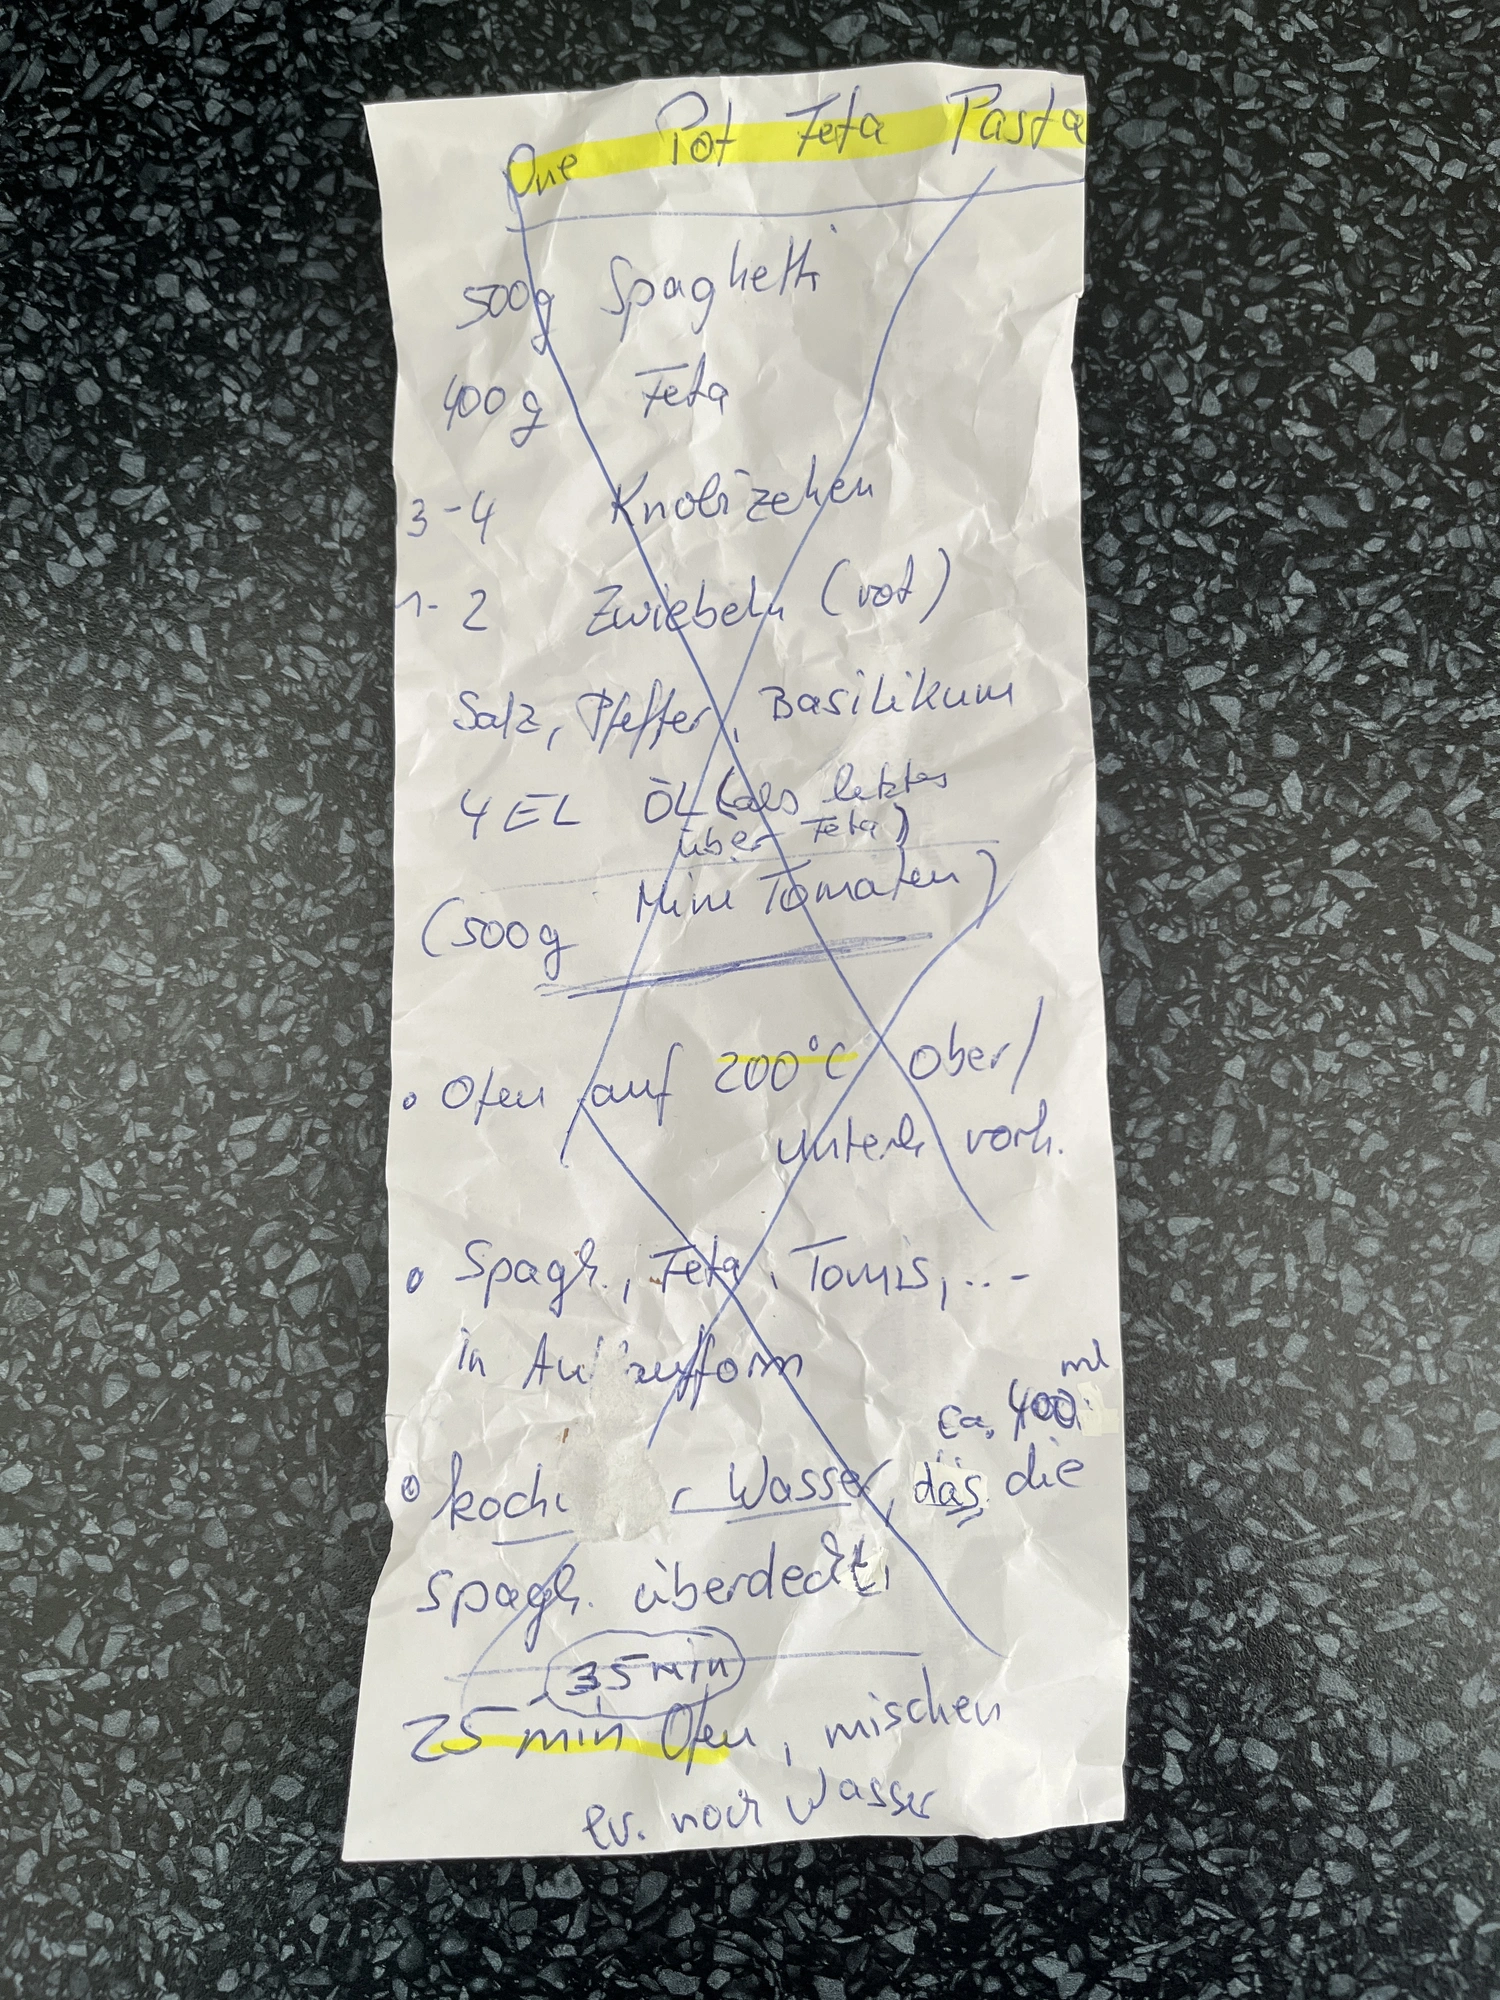 One Pot Feta Pasta
500g Spaghetti
400g Feta
3-4 Knobizehen
1-2 Zwiebeln (rot)
Salz, Pfeffer, Basilikum
4 EL ÖL (als letztes
über Feta)
(500g Mini Tomaten)
• Ofen auf 200°C Ober/
unterh vorh.
• Spagh., Feta, Tomis, ...
in Auflaufform
ca. 400 ml
• Wasser, das die
Spagh. überdeckt,
35 min
25 min Ofen, mischen
ev. noch Wasser